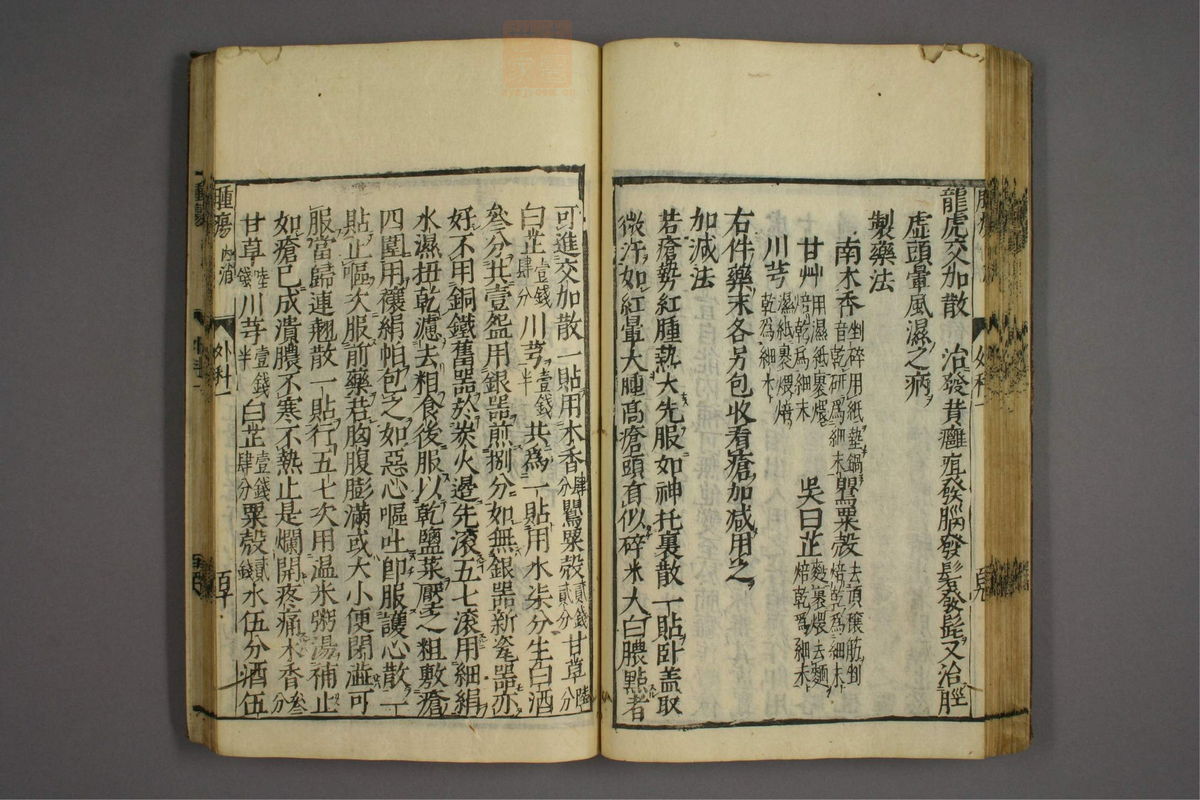 龍虎交加散　治發背癰疽發腦發鬢發髭又治脛
虛頭暈風濕之病
製藥法
南木香剉碎用紙墊鍋音乾研爲細末鸎粟殼去頂穰筋剉焙乾爲細末
甘艸用濕紙裹煨焙乾爲細末　吳白芷麪裹煨去麵焙乾爲細末
川芎濕紙裹煨焙乾爲細末
右件藥末各另包收看瘡加减用之
加減法
若瘡勢紅腫熱大先服如神托裏散一貼卧盖取
微汗如紅暈大腫高瘡頭有似碎米大白膿點者
可進交加散一貼用木香肆分鸎粟殼貳錢貳分甘草陸分
白芷壹錢肆分川芎壹錢半共爲一貼用水柒分生白酒
叄分共壹盌用銀器煎捌分如無銀器新瓷器亦
好不用銅鐵舊器於炭火邉先滚五七滚用細絹
水濕扭乾濾去粗食後服以乾鹽菜壓之粗敷瘡
四圍用穰絹帕包之如惡心嘔吐卽服護心散一
貼止嘔次服前藥若胸腹膨滿或大小便閉澁可
服當歸連翹散一貼行五七次用温米粥湯補止
如瘡巳成潰膿不寒不熱止是爛開疼痛木香叄分
甘草陸錢川芎壹錢半白芷壹錢肆分粟殼貳錢水伍分酒伍
腫瘍　內消
外科一